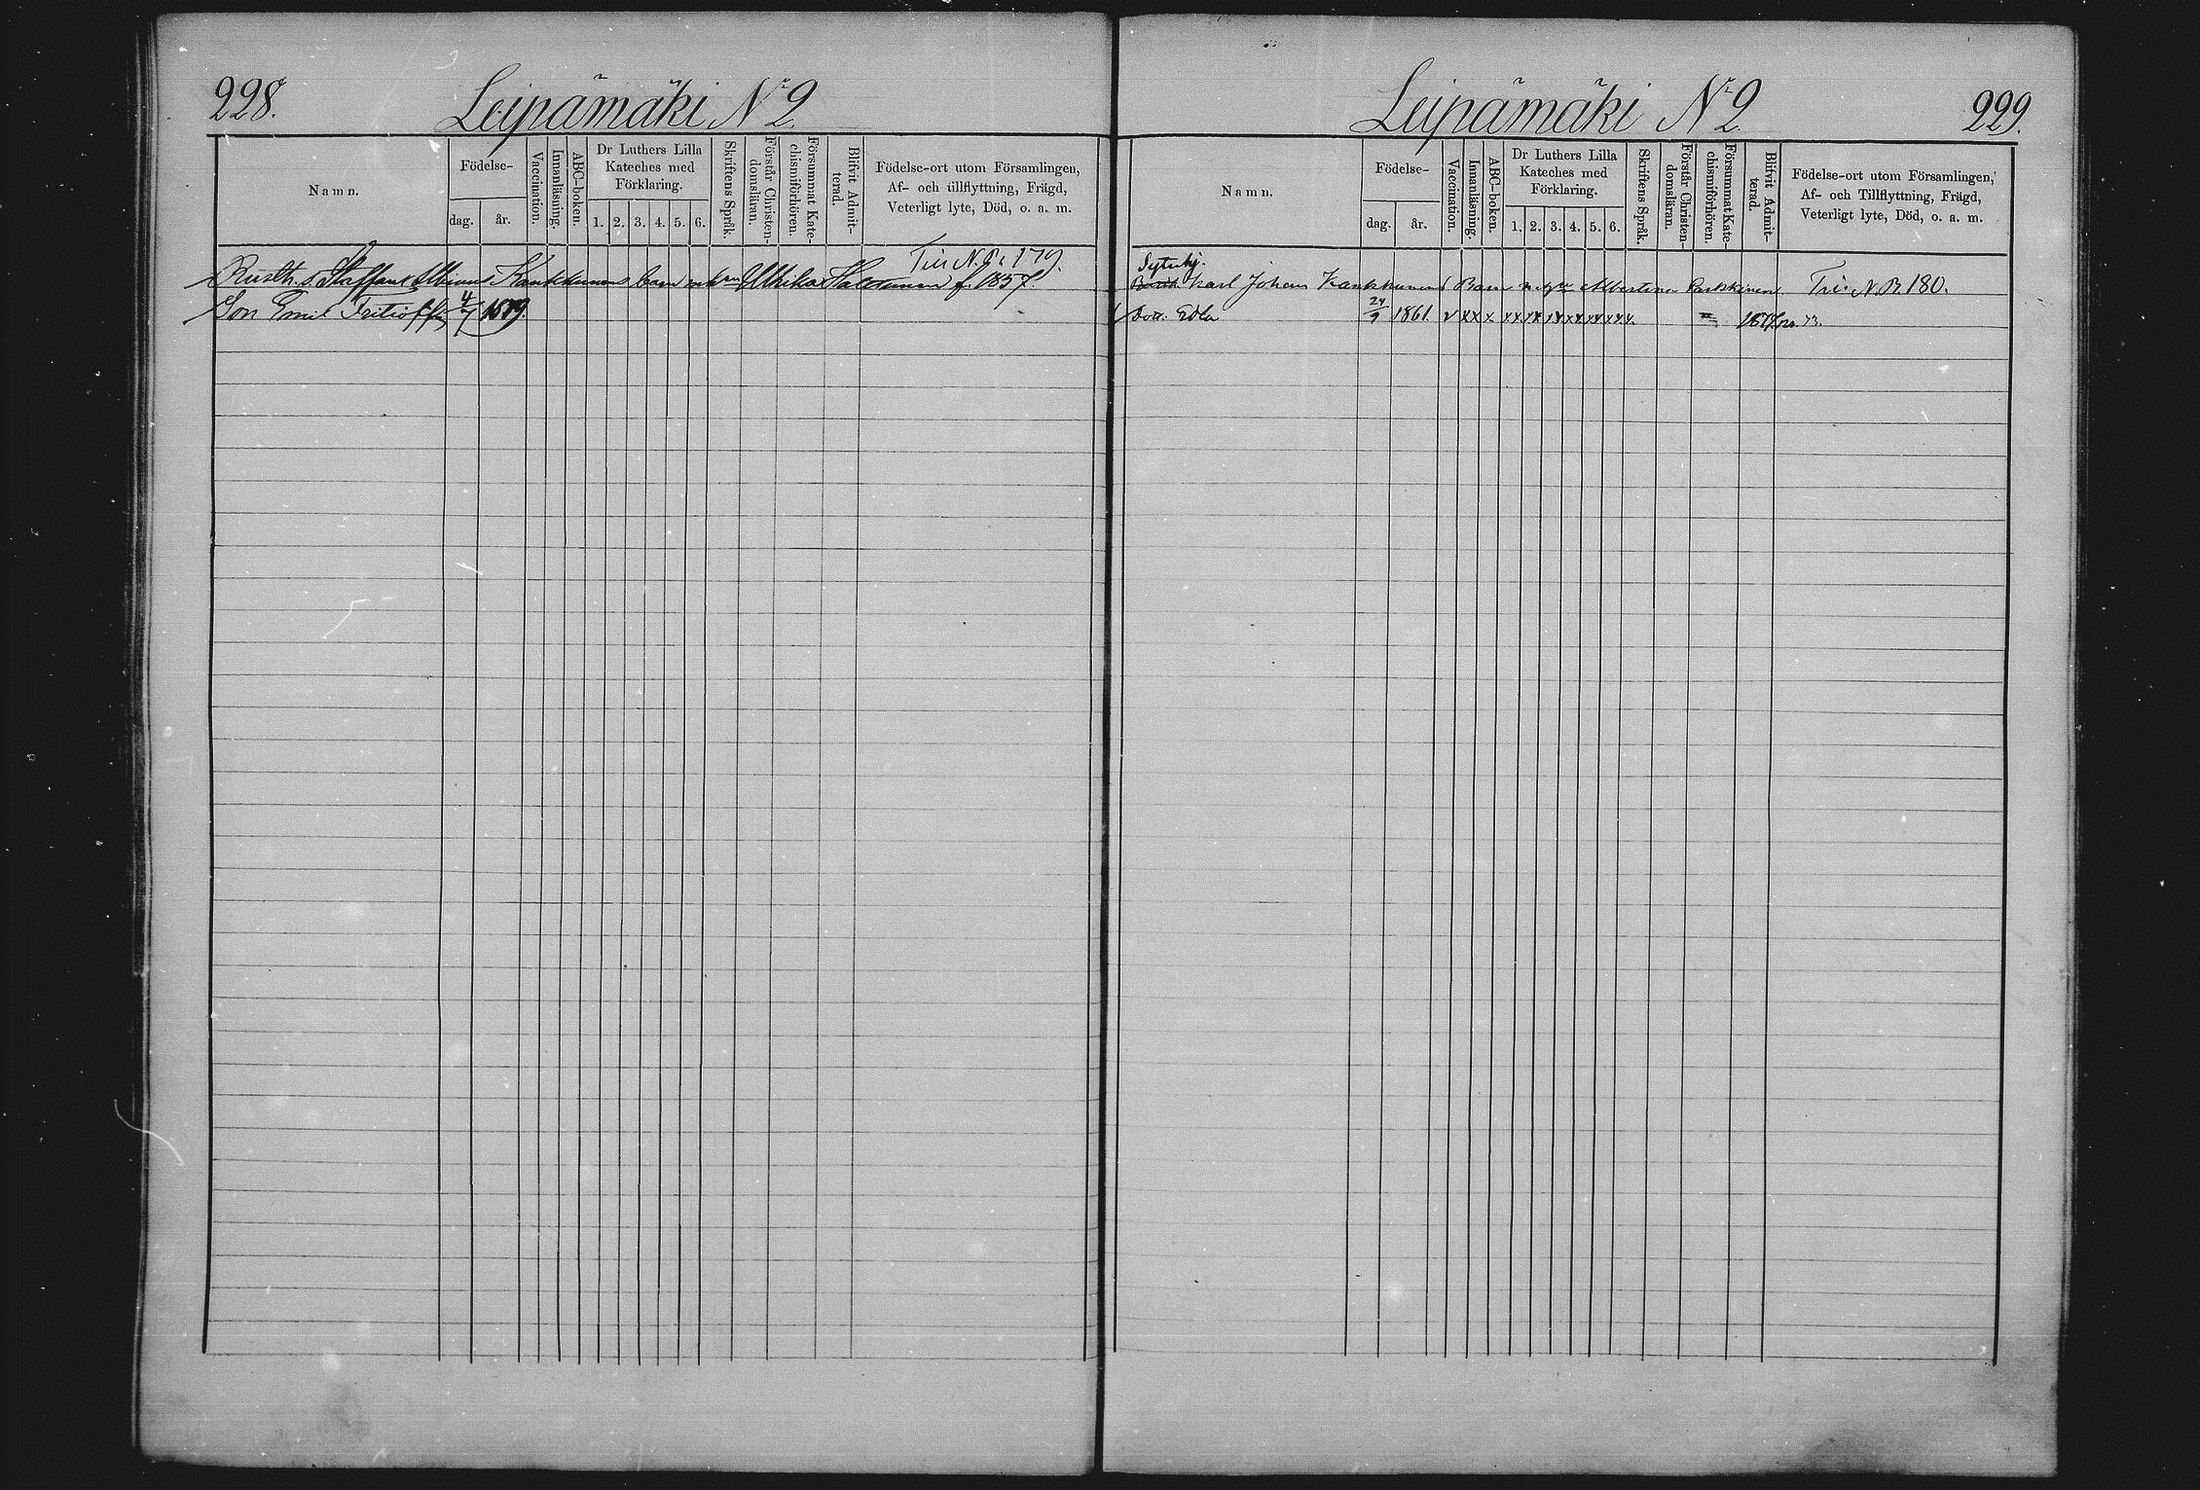 228. Leipämäki N:o 2.
Namn.
Födelse-
dag. år.
Vaccination.
Innanläsning.
ABC-boken.
Dr Luthers Lilla
Kateches med
Förklaring.
1. 2. 3. 4. 5. 6.
Skriftens Språk.
Förstår Christen-
domsläran.
Försummat Kate-
chismiförhören.
Blifvit Admit-
terad.
Födelse-ort utom Församlingen,
Af- och tillflyttning, Frägd,
Veterligt lyte, Död, o. a. m.
N. B. 179.
Rusth. s. Staffan Albinus Kankkunens barn m. Ulrika f. 1857.
Son Emil Fritioff 4/7 1879.
Leipämäki N:o 2. 229.
Namn.
Födelse-
dag. år.
Vaccination.
Innanläsning.
ABC-boken.
Dr Luthers Lilla
Kateches med
Förklaring.
1. 2. 3. 4. 5. 6.
Skriftens Språk.
Förstår Christen-
domsläran.
Försummat Kate-
chismiförhören.
Blifvit Admit-
terad.
Födelse-ort utom Församlingen,
Af- och Tillflyttning, Frägd,
Veterligt lyte, Död, o. a. m.
Sytnhj.
Karl Johan Kankkunens Barn m Albertina Parkkinen N. B. 180.
Dotr. Edla 24/9 1861. v xx x xx xx xx xx xx xxx.